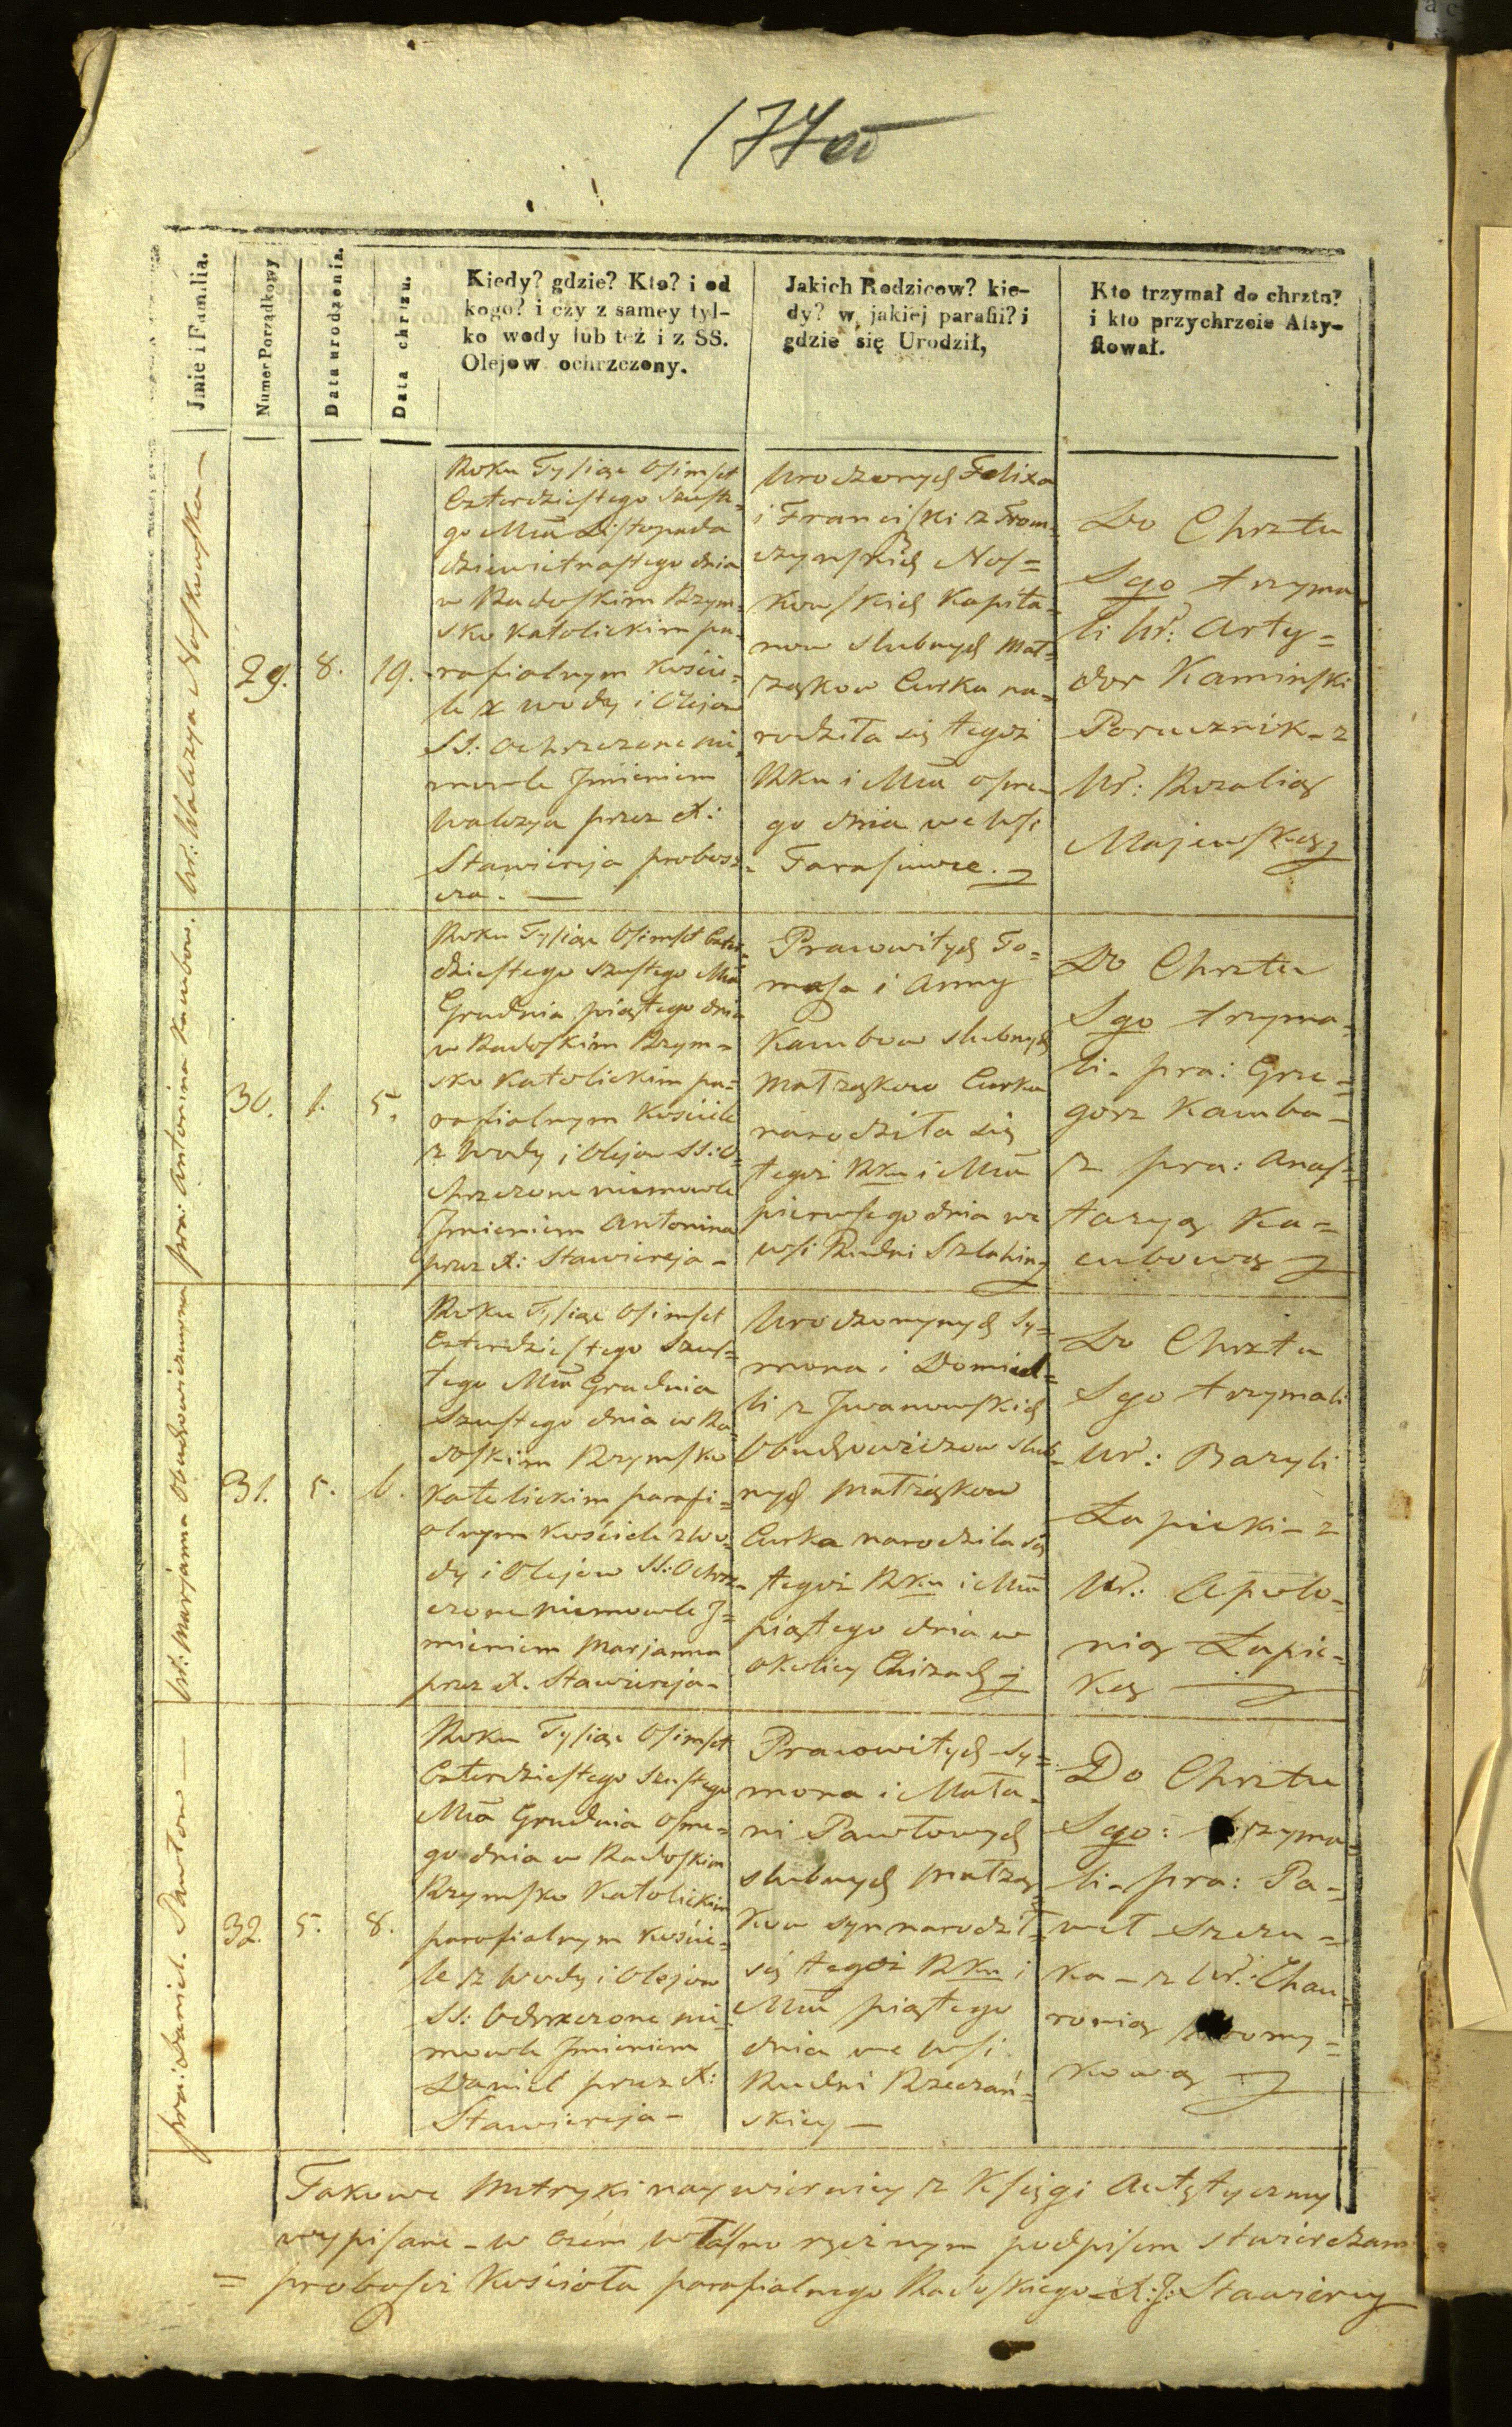 177
Jmie i Familia.
Numer Porządkowy
Data urodzenia.
Data chrztu.
Kiedy? gdzie? Kto? i od
kogo? i czy z samey tyl-
ko wody lub też i z SS.
Olejow ochrzczony.
Jakich Rodzicow? kie-
dy? w jakiej parafii? i
gdzie się Urodził,
Kto trzymał do chrztu?
i kto przychrzcie Assy-
stował.
Ur: Walerya Noskowska
29.
8.
19.
Roku Tysiąc Osimset
Czterdziestego Szuste-
go Mca Listopada
dziewietnastego dnia
w Radoskim Rzym-
sko Katolickim pa-
rafialnym Koście-
le z wody i Olejow
SS: Ochrzczone nie-
mowle Jmieniem
Walerya przez X:
Stawiereja probosz-
cza.
Urodzonych Felixa
i Franciszki z From-
czynskich Nos=
kowskich Kapita-
now slubnych Mał-
rząkow Curka na-
rodziła się tegoż
Rku i Mca osme-
go dnia we Wsi
Tarasowce.
Do Chrztu
Sgo trzyma-
li Ur: Arty=
dor Kaminski
Porucznik - z
Ur: Rozalią
Majewską
pra: Antonina Kaubow.
30.
1.
5.
Roku Tysiąc Osimset Czter-
dziestego szustego Mca
Grudnia piątego dnia
w Radoskim Rzym=
sko Katolickim pa=
rafialnym Kościele
z Wody i Olejow SS: O=
chrzczone niemowle
Jmieniem Antonina
przez X: Stawiereja -
Prawowitych To=
masza i Anny
Kaubow slubnych
Małrząkow Curka
narodziła się
tegoż Rku i Mca
pierwszego dnia we
wsi Rudni Szlahiny
Do Chrztu
Sgo trzyma-
li - pra: Grze-
gorz Kauba -
z pra: Anas-
tazyą Ka=
eubową
Ur: Marjanna Obuchowiczuwna
31.
5.
6.
Roku Tysiąc Osimset
Czterdziestego Szus=
tego Mca Grudnia
Szustego dnia w Ra-
doskim Rzymsko
Katolickim parafi=
alnym Kościele z Wo-
dy i Olejow SS: Ochrz-
czone niemowle J=
mieniem Marjanna
przez X. Stawiereja -
Urodzonynych Sy=
mona i Domicel=
li z Jwanowskich
Obuchowiczow slub-
nych Małrząkow
Curka narodzila się
tegoż Rku i Mca
piątego dnia w
okolicy Chizach
Do Chrztu
Sgo trzymali
Ur: Bazyli
Łapicki - z
Ur: Apolo-
nią Łapic=
ką
pra: Daniel Pawłow
32.
5.
8.
Roku Tysiąc Osimset
Czterdziestego Szustego
Mca Grudnia osme=
go dnia w Radoskim
Rzymsko Katolickim
parafialnym Koście=
le z Wody i Olejow
SS: Ochrzczone nie
mowle Jmieniem
Daniel przez X:
Stawiereja -
Prawowitych Sy=
mona i Mała-
ni Pawłowych
slubnych Małrzą-
kow syn narodził
się tegoż Rku i
Mca piątego
dnia we Wsi
Rudni Rzeczań-
skiey -
Do Chrztu
Sgo: trzyma-
li - pra: Pa=
weł Szczu=
ka - z Ur: Chau-
ronią
kową
Takowe Metryki naywierniey z Księgi Autętyczney
wypisane - w czém własno ręcznym podpisem stwierdzam
= proboszcz Kościoła parafialnego Radoskiego X: J: Stawierey